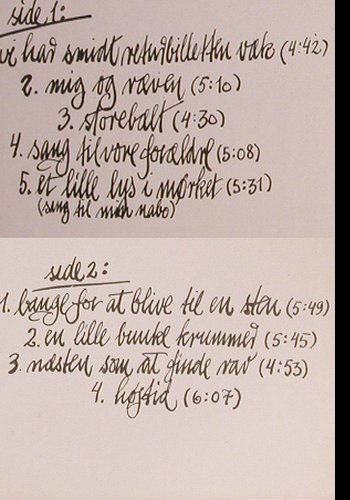 side 1:
vi had smidt returbilletten væk (4:42)
2. mig og ræven (5:10)
3. storebælt (4:30)
4. sang til vore forældre (5:08)
5. et lille lys i mørket (5:31)
(sang til min nabo)
side 2:
1. bange for at blive til en sten (5:49)
2. en lille bunke krummer (5:45)
3. næsten som at finde rav (4:53)
4. højtid (6:07)